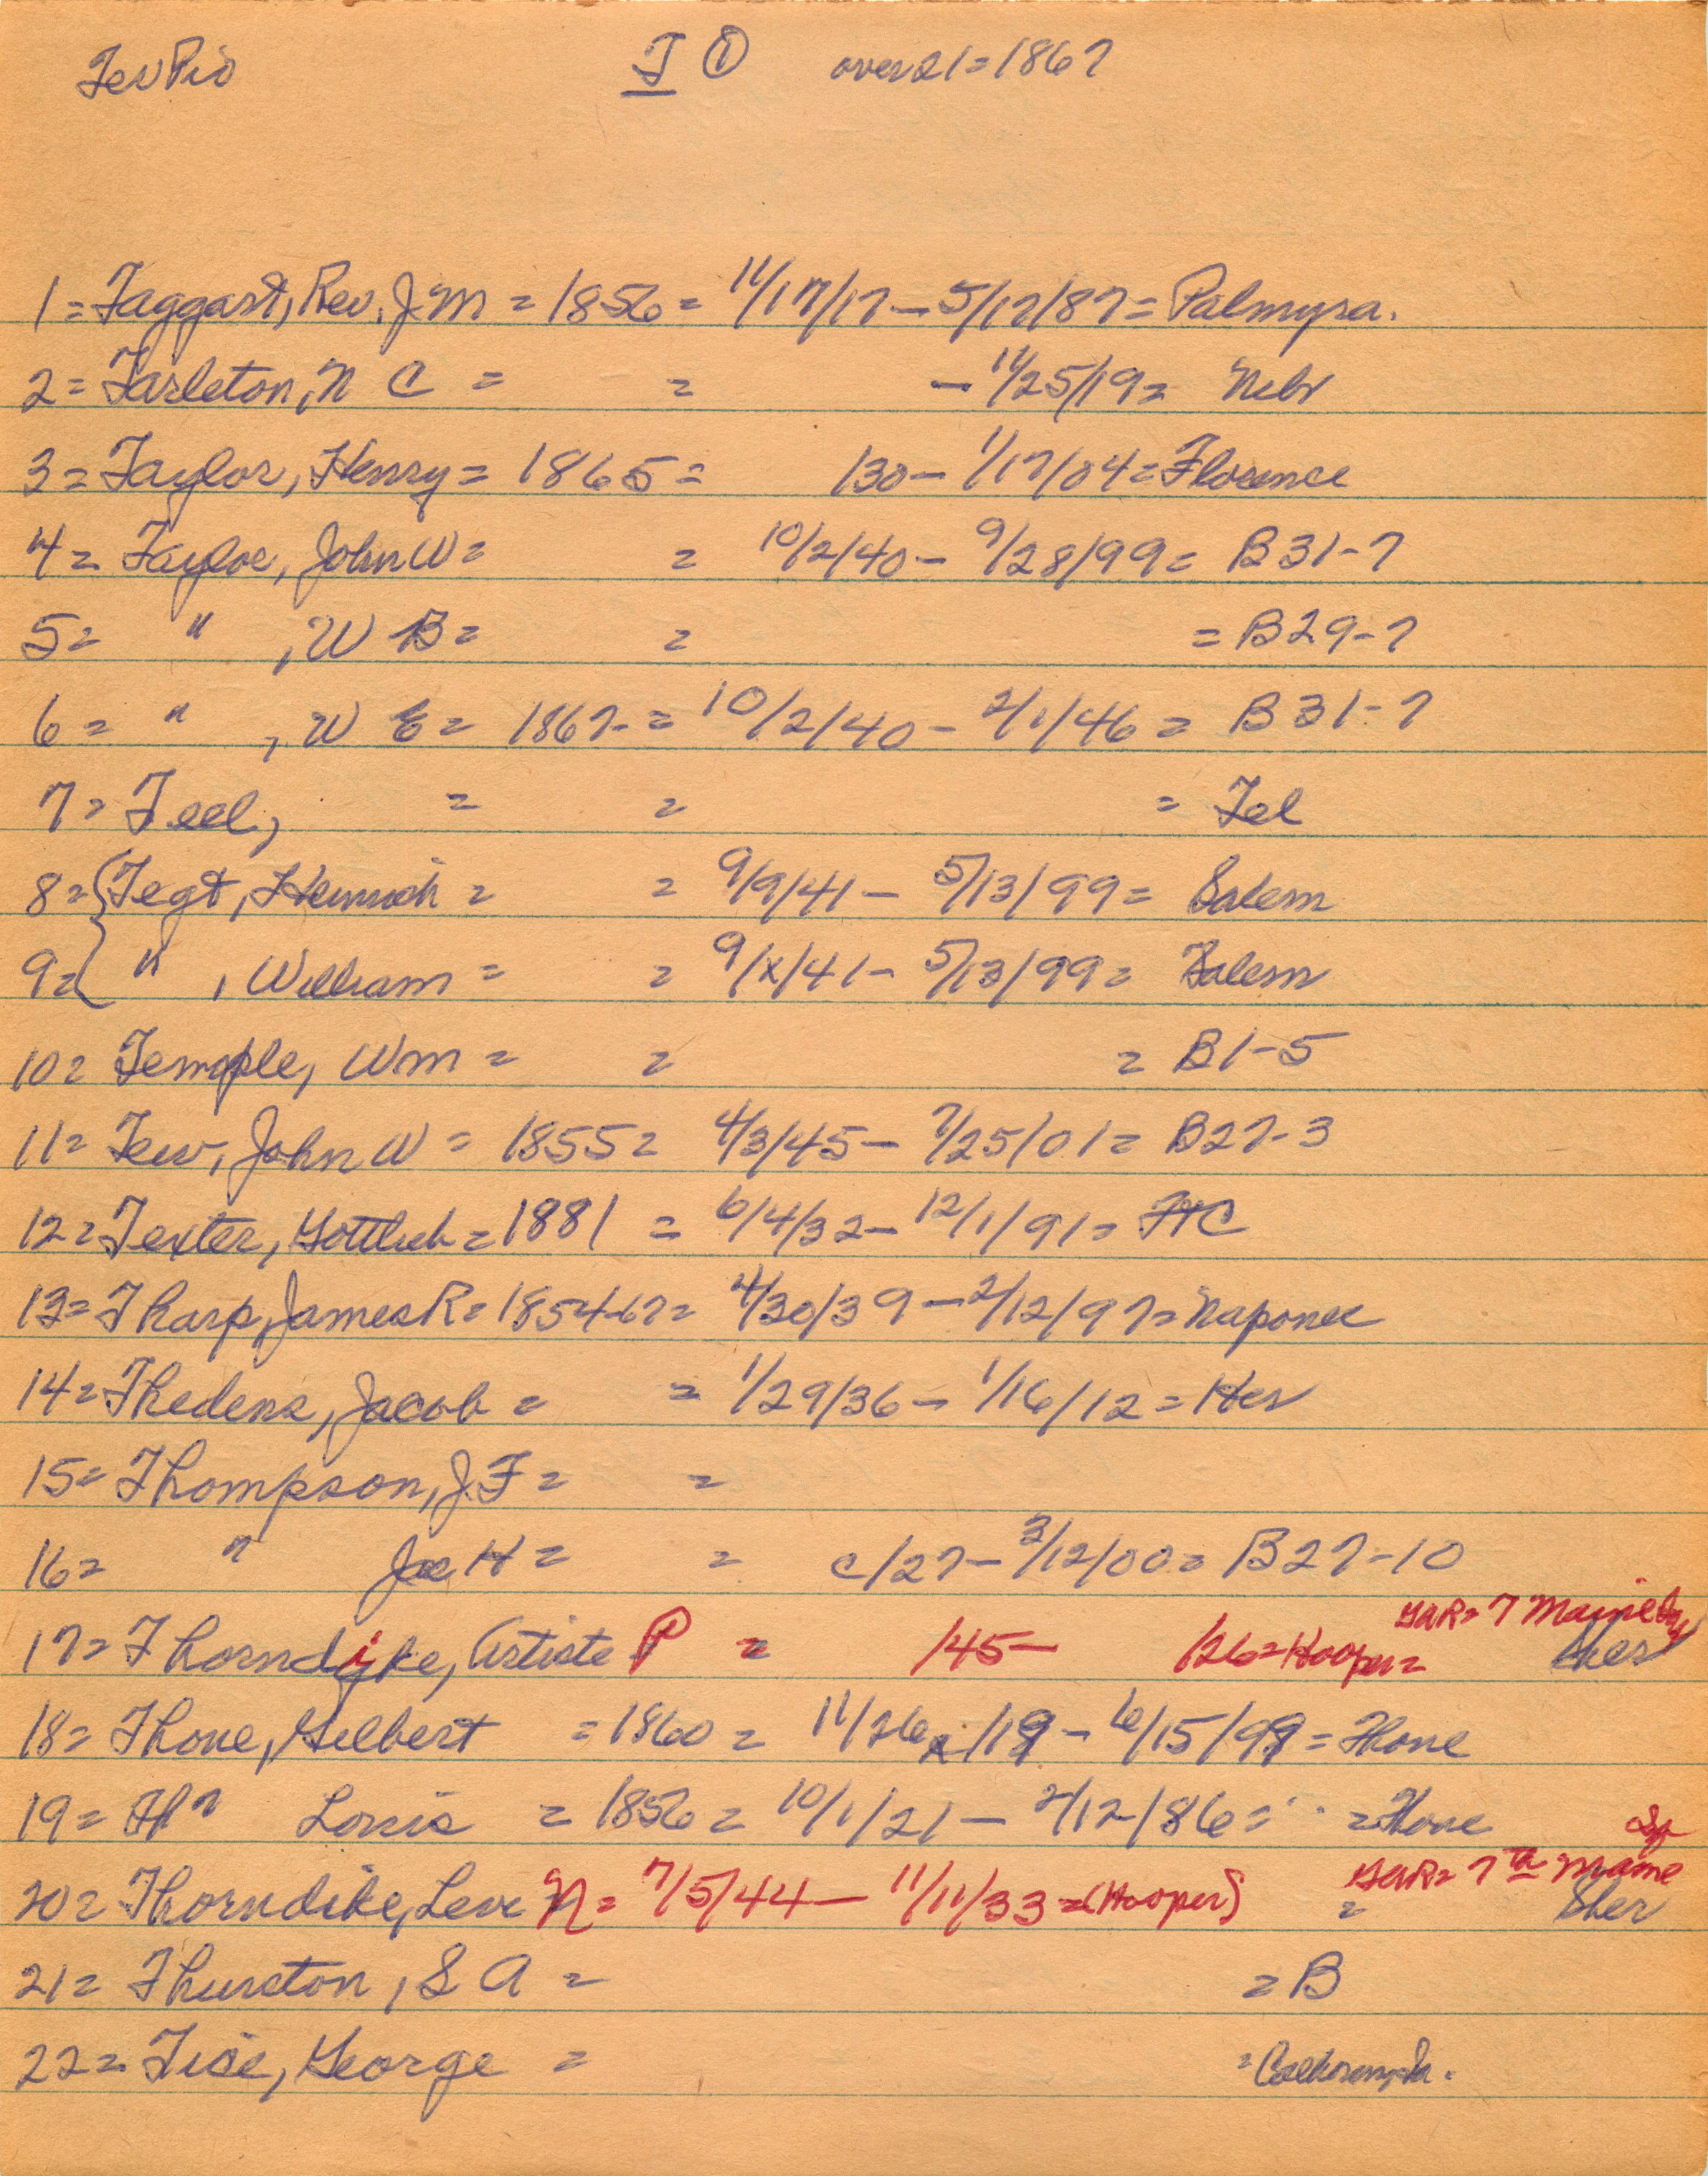 TerPio T ① over 21=1867
1= Taggart, Rev. J M = 1856= 11/17/17 - 5/17/87= Palmyra.
2= Tarleton, N C = = - 11/25/19= Nebr
3= Taylor, Henry= 1865= 130- 1/17/04= Florence
4= Tayloe, John W= = 10/2/40- 9/28/99= B31-7
5= " , W B= = = B29-7
6= " , W E= 1867-= 10/2/40 - 2/1/46= B31-7
7= Teel, = = = Tel
8= {Tegt, Heinrich = = 9/9/41- 5/13/99= Salem
9= { " , William = = 9/x/41- 5/13/99= Salem
10= Temple, Wm = = = B1-5
11= Tew, John W = 1855= 4/3/45- 7/25/01= B27-3
12= Texter, Gottlieb = 1881 = 6/4/32- 12/1/91= FtC
13= Tharp, James R= 1854-67= 4/30/39 - 2/12/97= Naponee
14= Thedens, Jacob = = 1/29/36- 1/16/12= Her
15= Thompson, J. F = =
16= " Joe H = = c/27- 3/12/00= B27-10
GAR= 7 Maine
17= Thorndike, Artiste P = /45- /26= Hooper= Sher
18= Thone, Gilbert = 1860 = 11/26/19 - 6/15/99= Thone
19= Th " Louis = 1856= 10/1/21- 2/12/86= = Thone
GAR= 7th Maine
20= Thorndike, Leve N= 7/5/44- 11/11/33=(Hooper) = Sher
21= Thurston, S A = = B
22= Tise, George = =